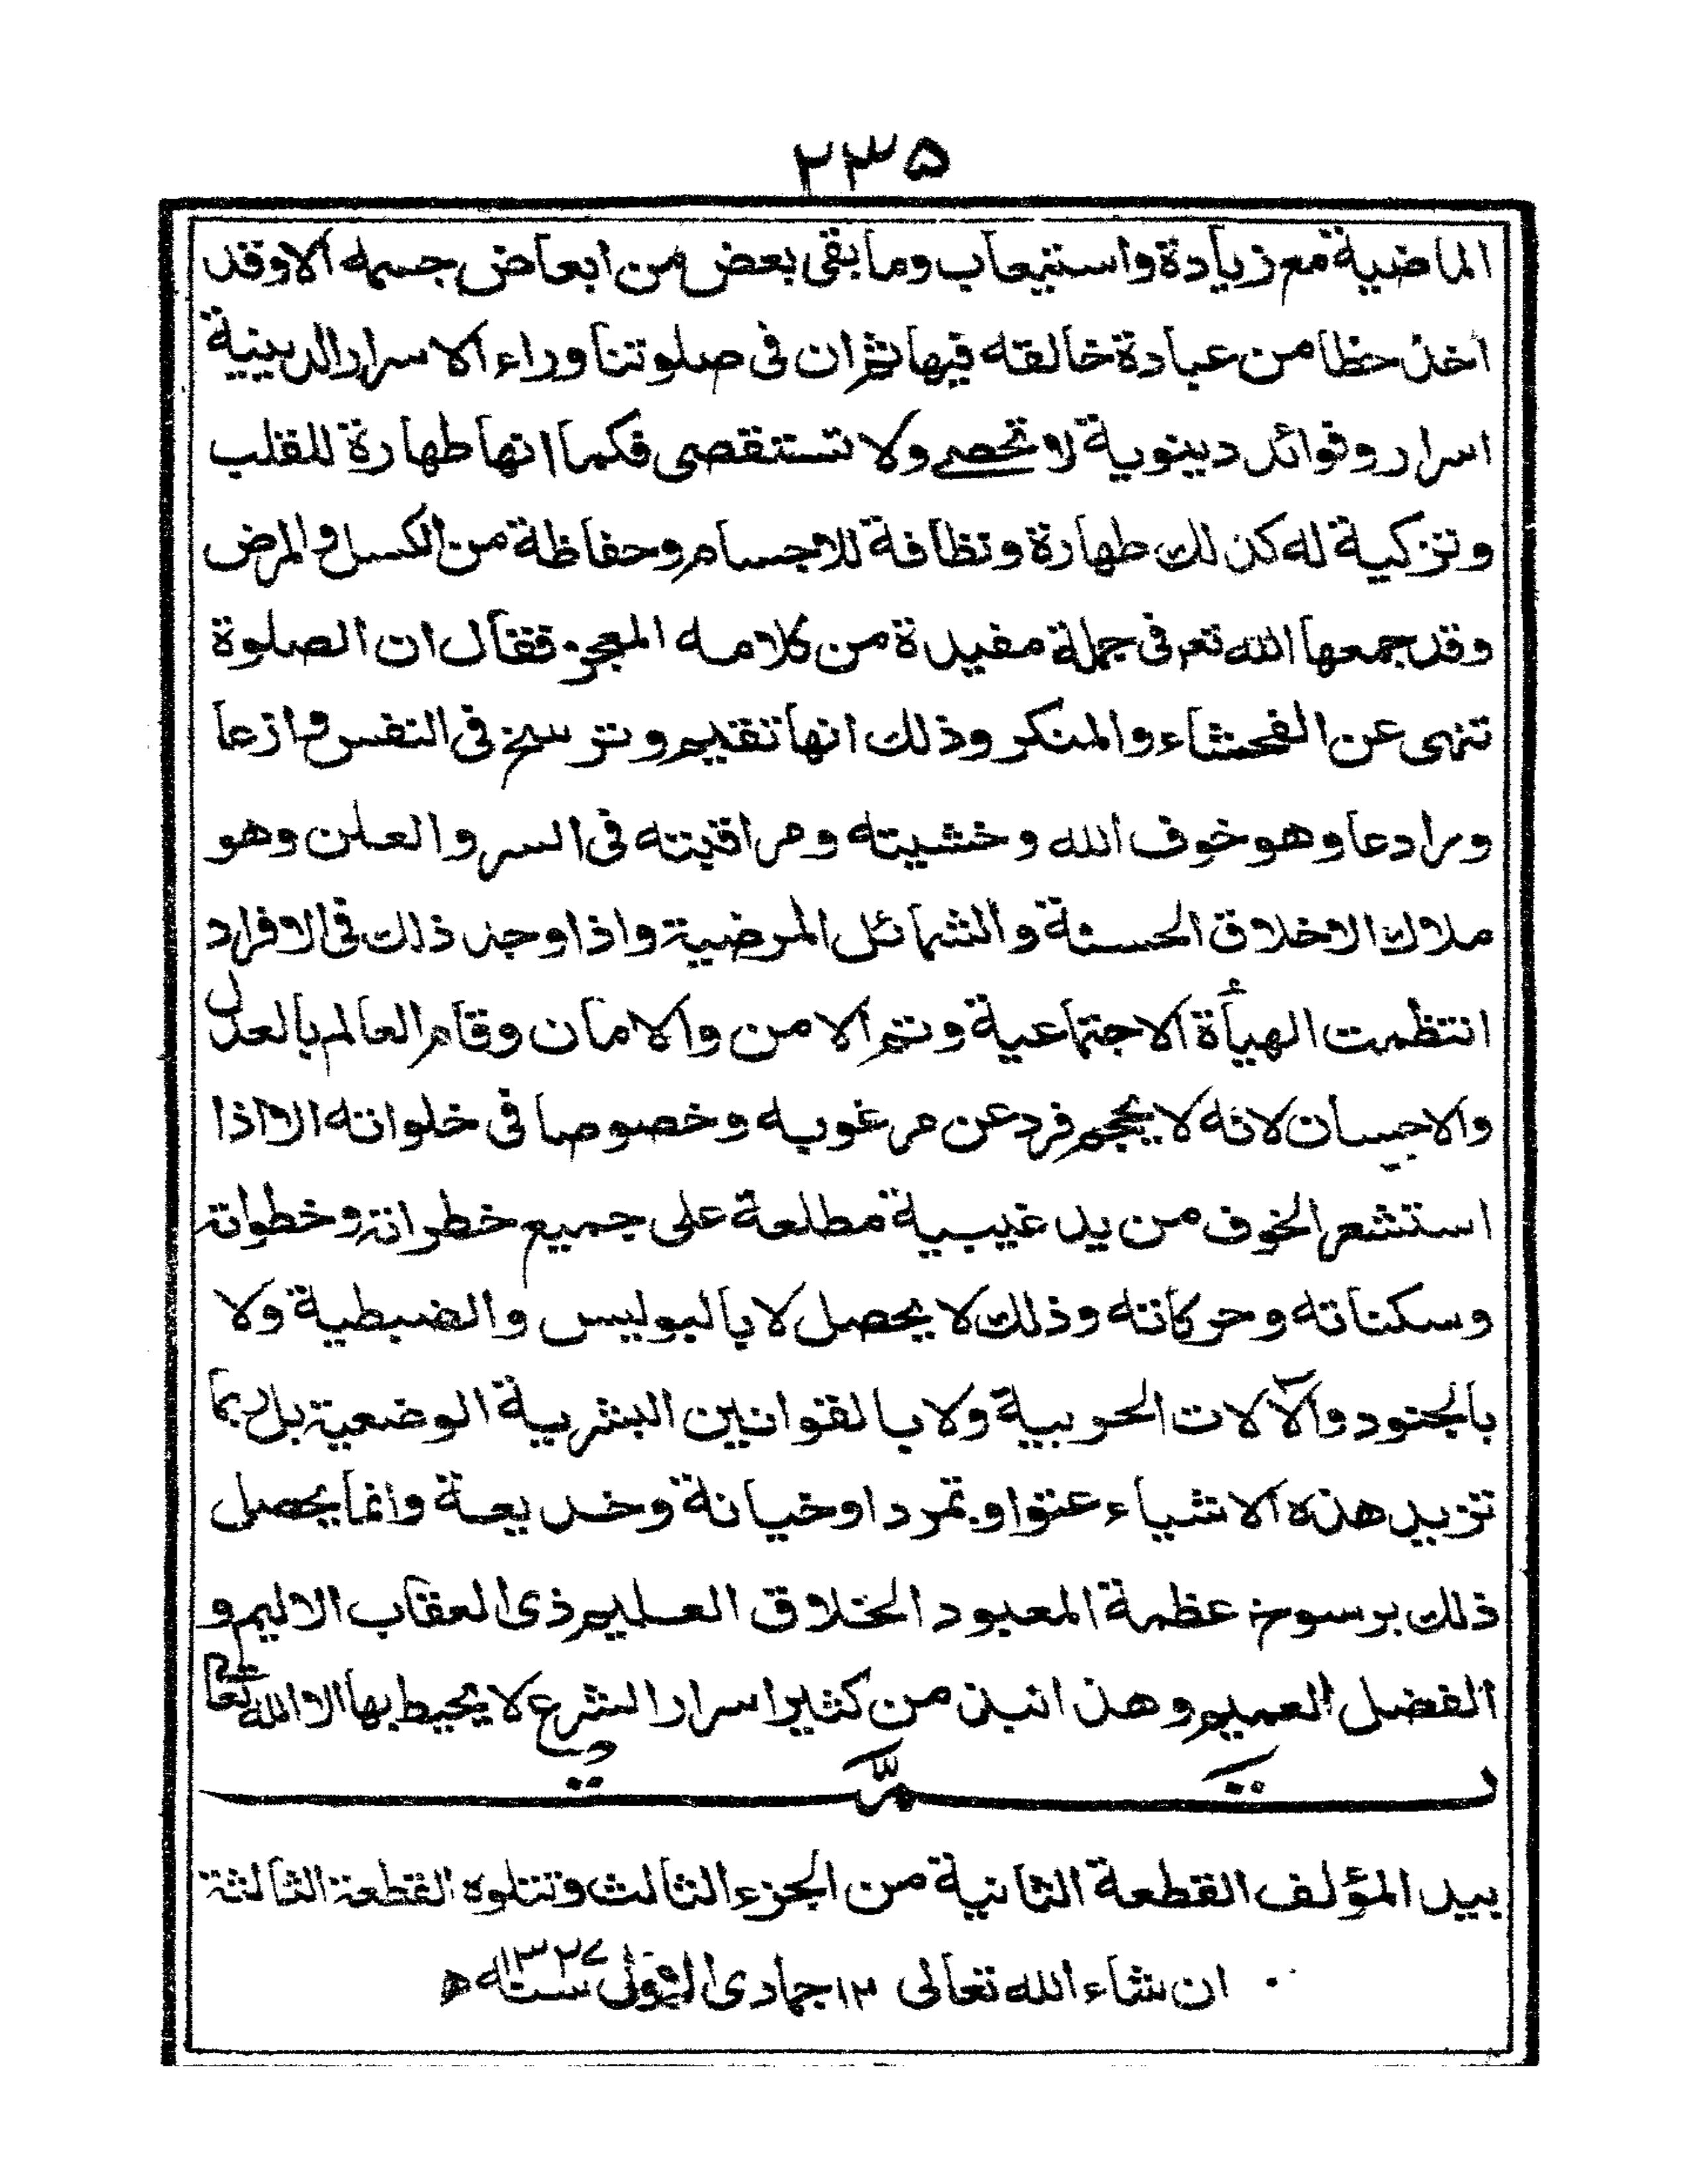 ٢٣٥
الماضية مع زيادة واستيعاب وما بقى بعض من ابعاض جسمه الا وقد
اخذ حظا من عبادة خالقه فيها ثم ان فى صلوتنا وراء الاسرار الدينية
اسرار وفوائد دينوية لا تحصى ولا تستقصى فكما انها طهارة للقلب
وتزكية له كذلك طهارة ونظافة للاجسام وحفاظة من الكسل والمرض
وقد جمعها الله تعم فى جملة مفيدة من كلامه المعجز فقال ان الصلوة
تنهى عن الفحشاء والمنكر وذلك انها تقيم وترسخ فى النفس وازعا
ورادعا وهو خوف الله وخشيته ومراقبته فى السر والعلن وهو
ملاك الاخلاق الحسنة والشمائل المرضية واذا وجد ذلك فى الافراد
انتظمت الهيأة الاجتماعية وتم الامن والامان وقام العالم بالعدل
والاحسان لانه لا يحجم فرد عن مرغوبه وخصوصا فى خلواته الا اذا
استشعر الخوف من يد غيبية مطلعة على جميع خطراته وخطواته
وسكناته وحركاته وذلك لا يحصل لا بالبوليس والضبطية ولا
بالجنود والآلات الحربية ولا بالقوانين البشرية الوضعية بل ربما
تزيد هذه الاشياء عتوا وتمردا وخيانة وخديعة وانما يحصل
ذلك برسوخ عظمة المعبود الخلاق العليم ذى العقاب الاليم و
الفضل العميم وهذا نبذ من كثير اسرار الشرع لا يحيط بها الا الله تعالى
تمّت
بيد المؤلف القطعة الثانية من الجزء الثالث وتتلوه القطعة الثالثة
ان شاء الله تعالى ١٢ جمادى الاولى سنة ١٣٢٧ه